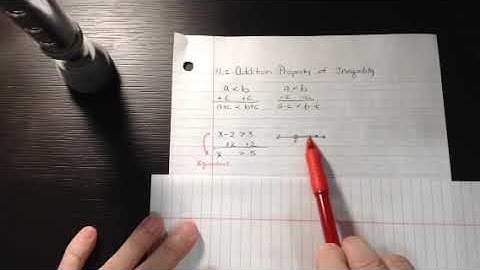 Addition Property of Inequality
a < b a < b
+c +c -c -c
a+c < b+c a-c < b-c
x-2 > 3
+2 +2
x > 5